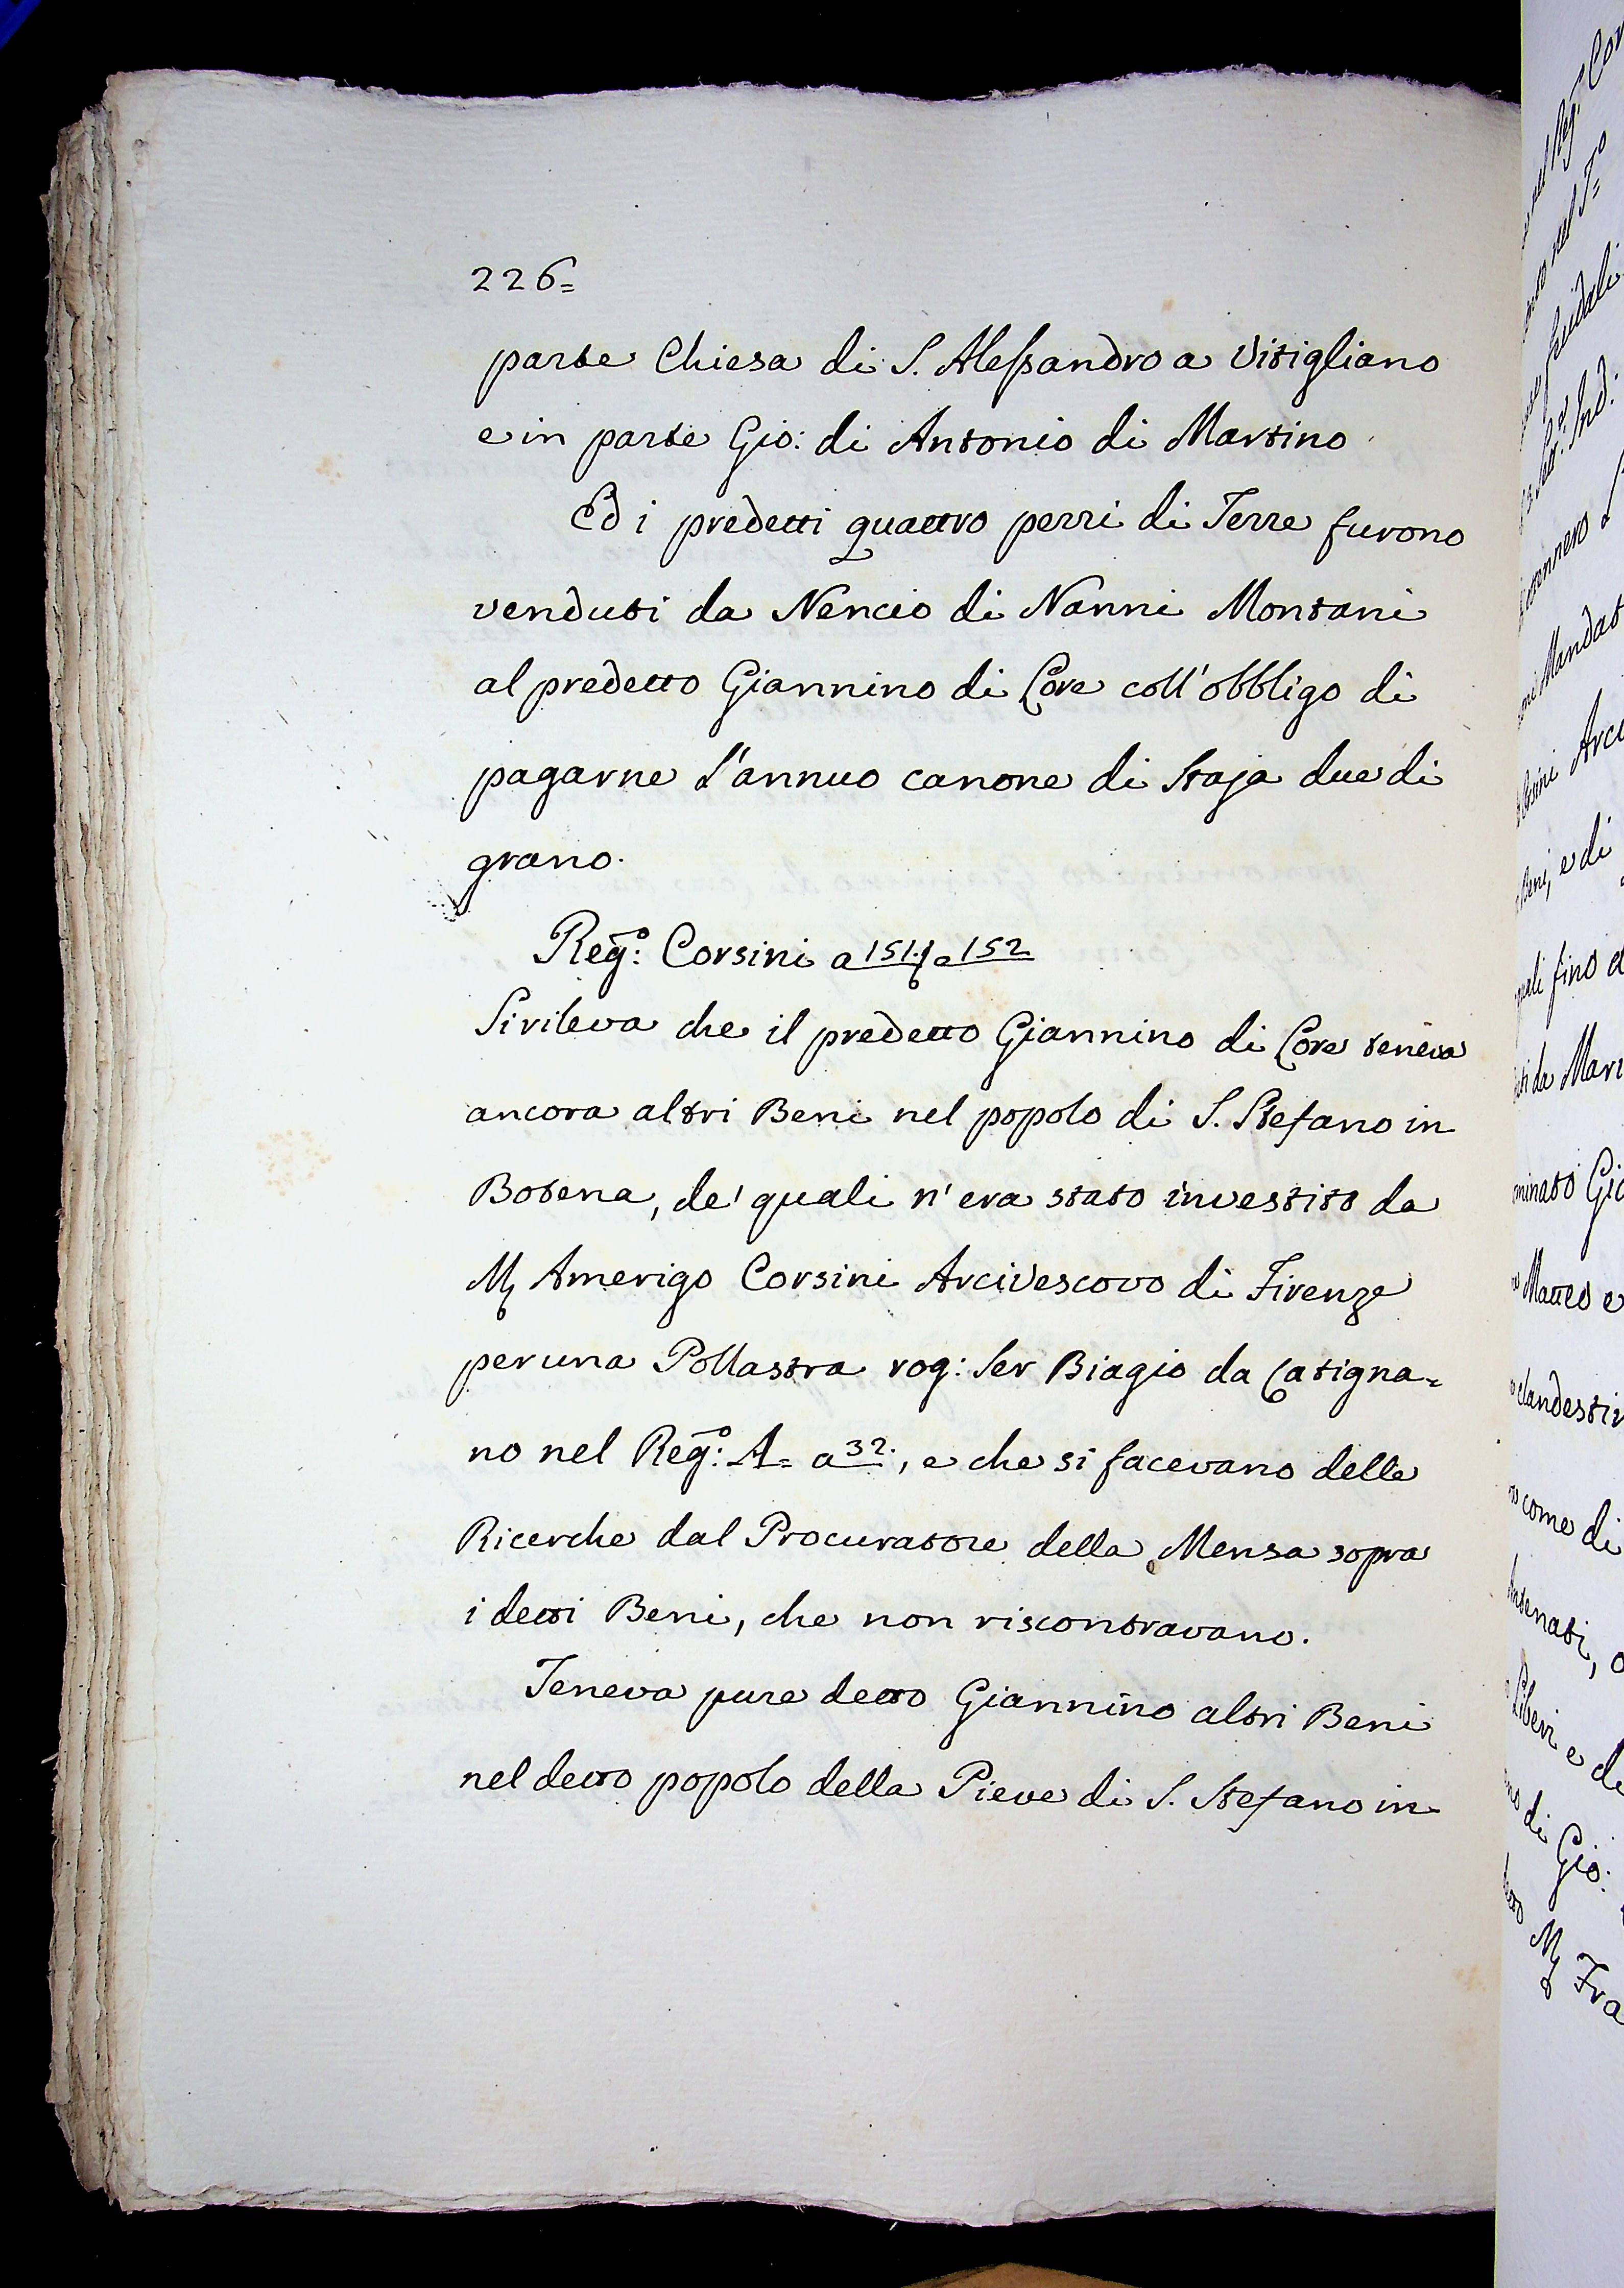 226=
parte Chiesa di S. Alessandro a Vitigliano
e in parte Gio: di Antonio di Martino
Ed i predetti quattro pezzi di Terre furono
venduti da Nencio di Nanni Montani
al predetto Giannino di Core coll'obbligo di
pagarne l'annuo canone di Staja due di
grano.
Reg.º: Corsini a 151. e a 152
Si rileva che il predetto Giannino di Core teneva
ancora altri Beni nel popolo di S. Stefano in
Botena, de' quali n'era stato investito da
M. Amerigo Corsini Arcivescovo di Firenze
per una Pollastra rog: Ser Biagio da Catigna=
no nel Reg.º: A= a 32., e che si facevano delle
Ricerche dal Procuratore della Mensa sopra
i detti Beni, che non riscontravano.
Teneva pure detto Giannino altri Beni
nel detto popolo della Pieve di S. Stefano in
Mandat
Arci
Beni, e di
fino a
da Mari
Gio
Matteo e
clandestin
come di
Liberi e di
di Gio:
M. Fra